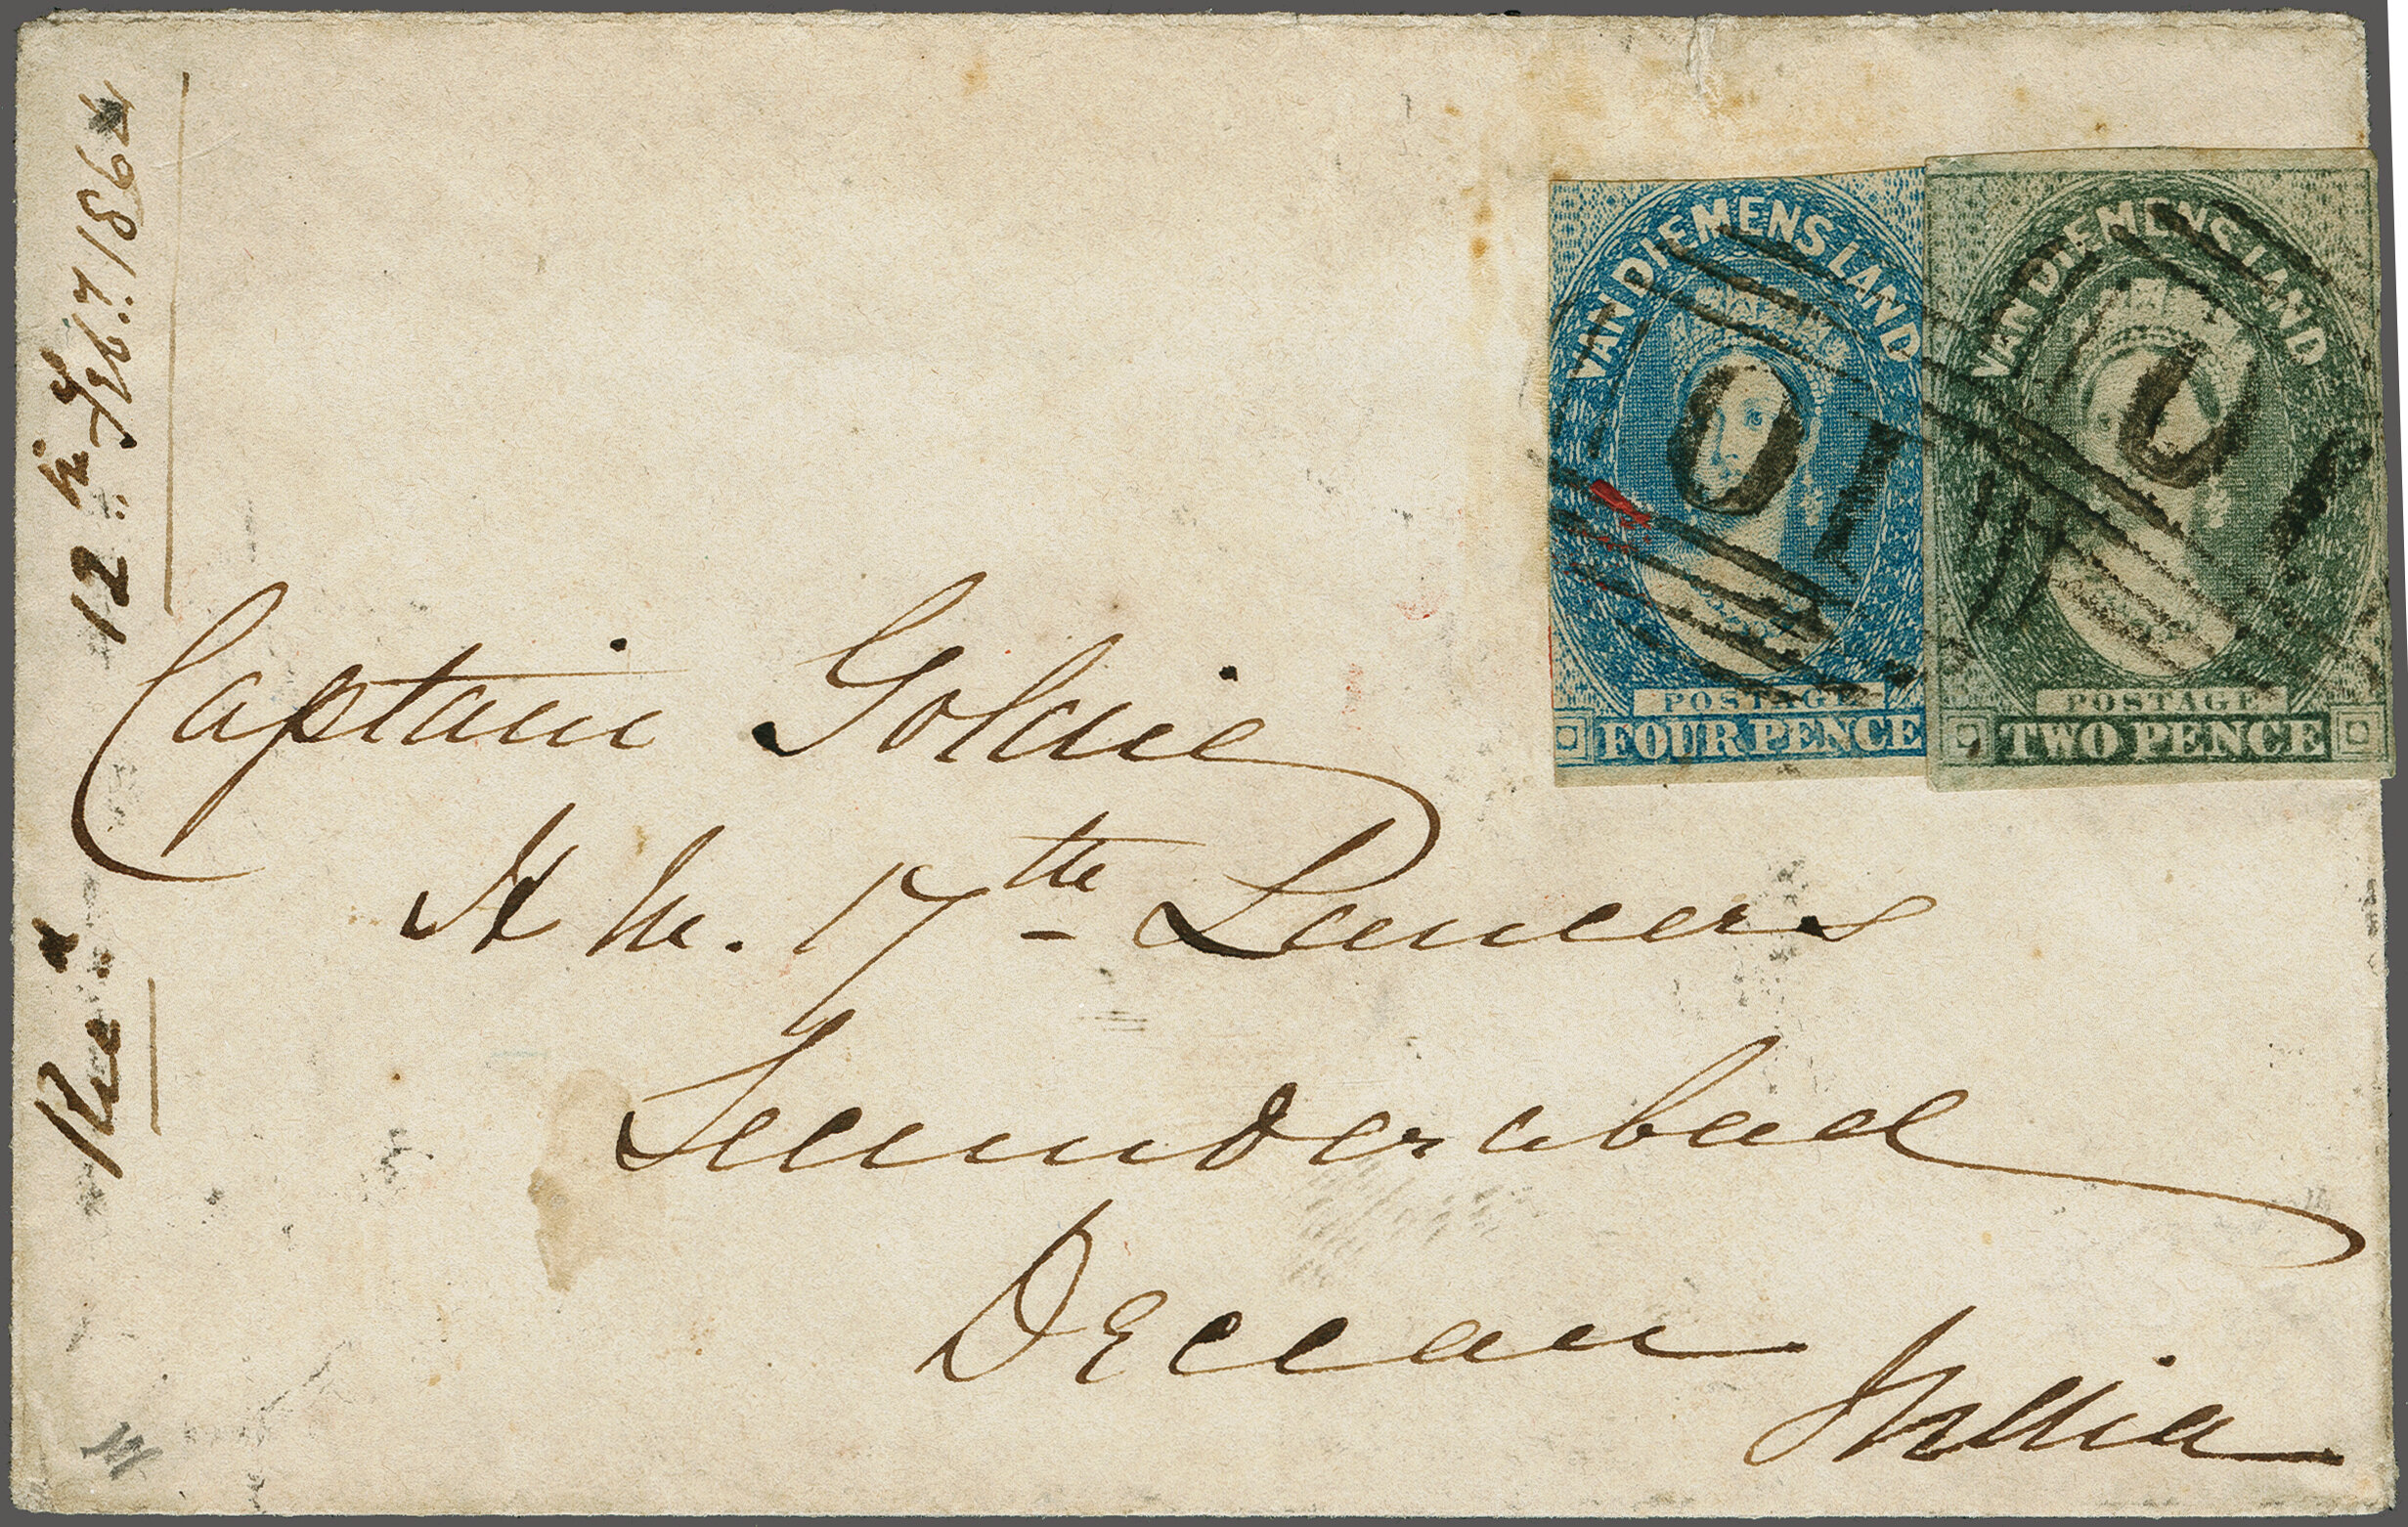 Rec.d 12th Feb.y 1864
VAN DIEMENS LAND
POSTAGE
FOUR PENCE
VAN DIEMENS LAND
POSTAGE
TWO PENCE
01
01
Captain Goldie
H M. 17th Lancers
Secunderabad
Deccan
India